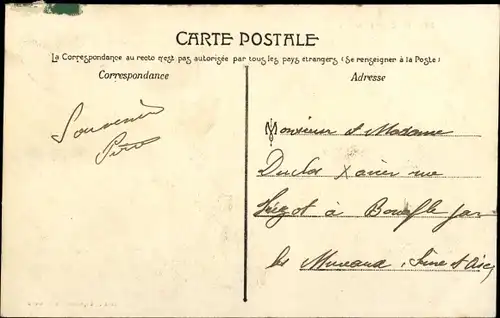 CARTE POSTALE
La Correspondance au recto n'est pas autorisée par tous les pays étrangers (Se renseigner à la Poste)
Correspondance
Adresse
Souvenir
Monsieur et Madame
Duclos rue
à Bouafle par
les Mureaux, Seine et Oise